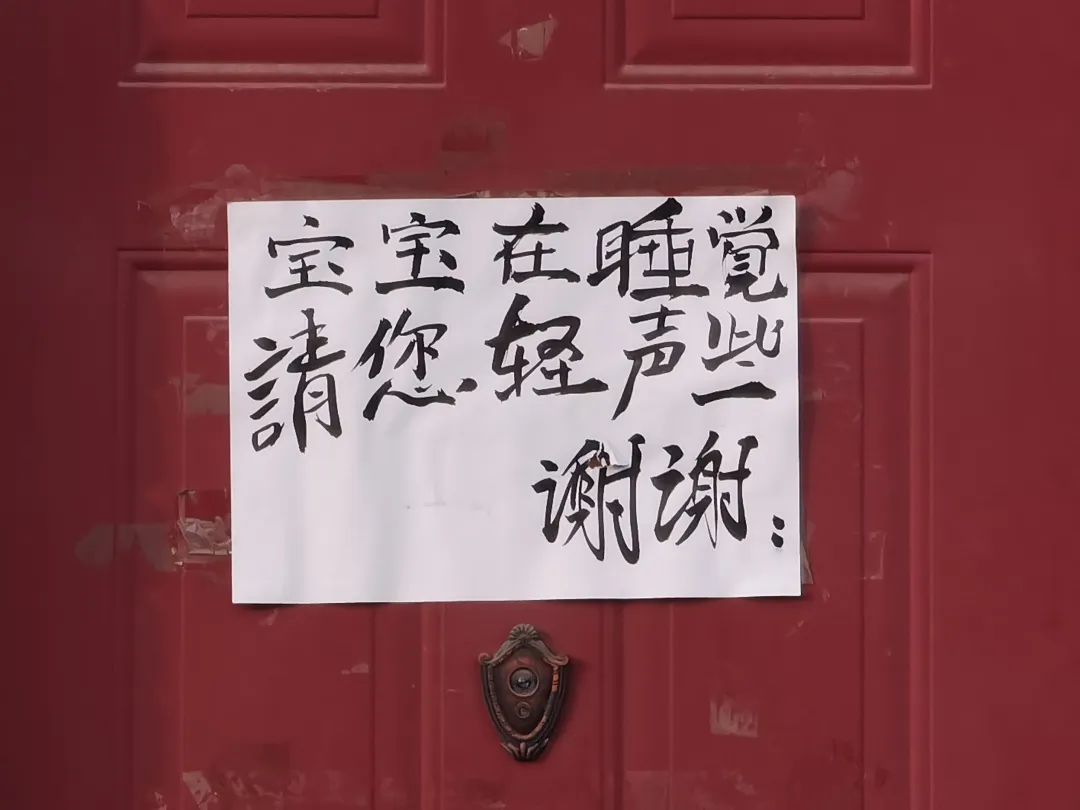 宝宝在睡觉
請您轻声些
谢谢：